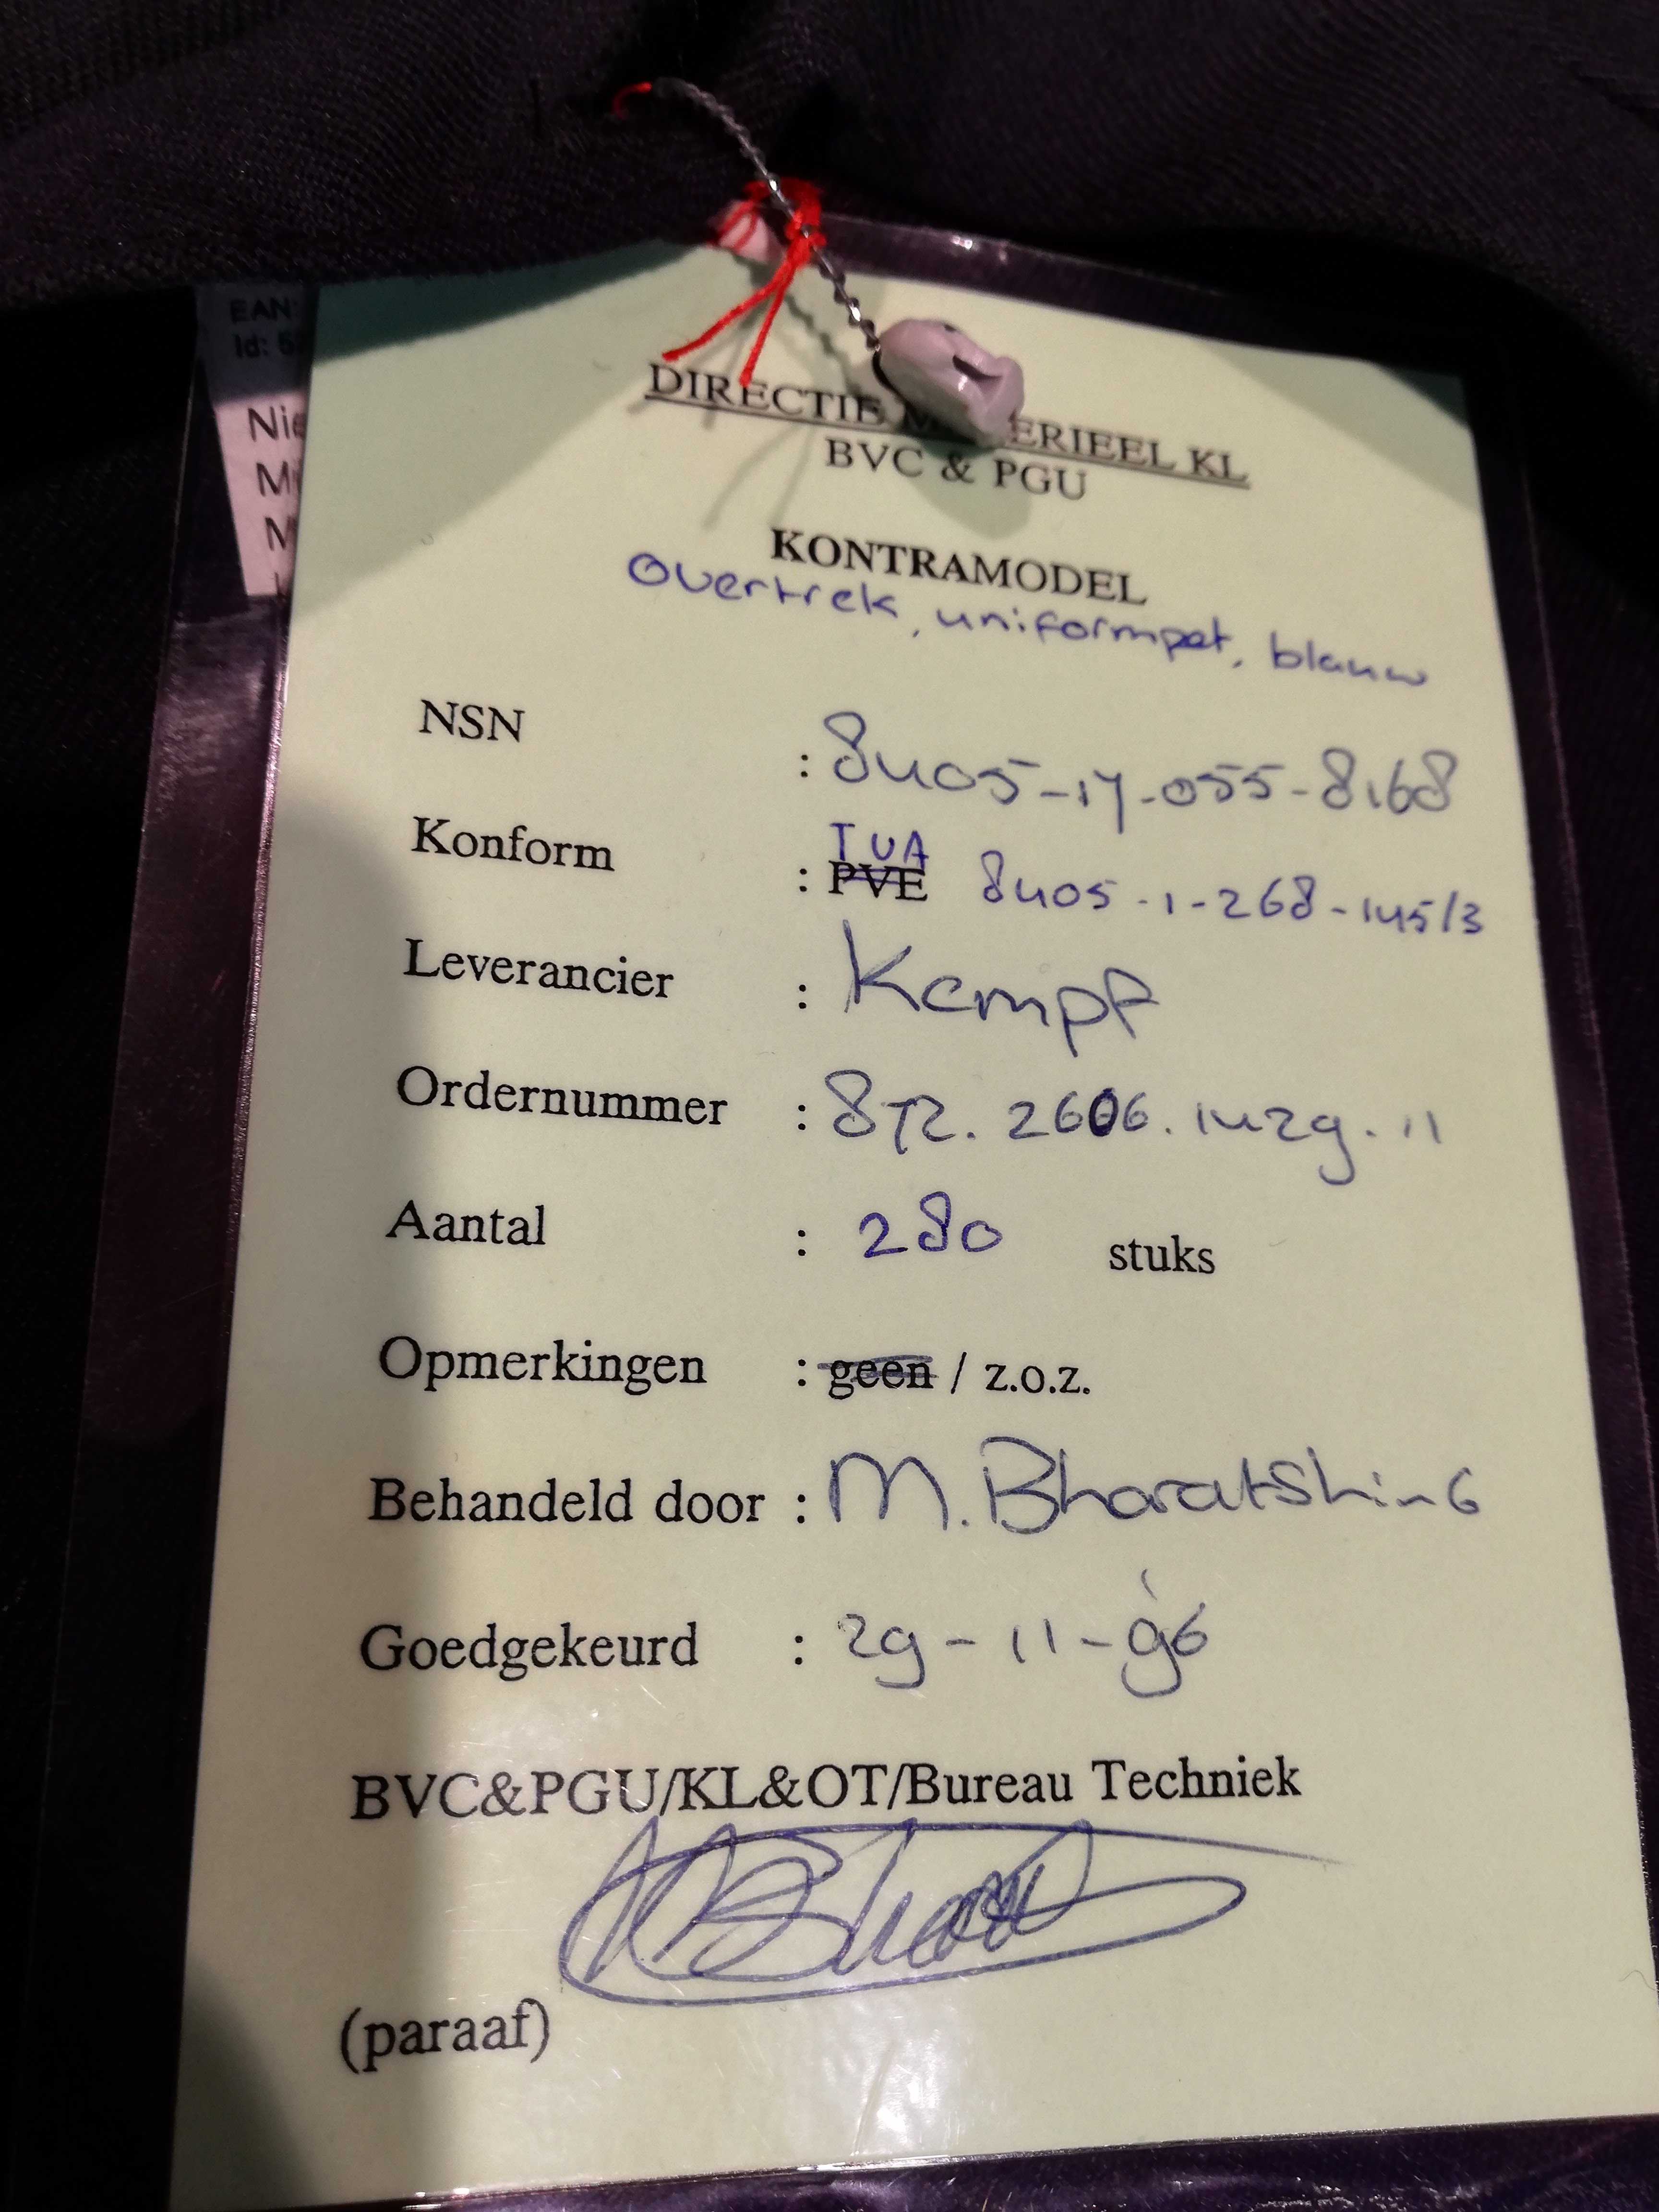 EAN:
Id: 5
Nie
M
M
DIRECTIE M ERIEEL KL
BVC & PGU
KONTRAMODEL
Overtrek, uniformpet, blauw
NSN : 8405-17-055-8168
Konform : PVE TVA 8405-1-268-145/3
Leverancier : Kempf
Ordernummer : 872.2606.1429.11
Aantal : 280 stuks
Opmerkingen : geen / z.o.z.
Behandeld door : M. BharatshinG
Goedgekeurd : 29-11-96
BVC&PGU/KL&OT/Bureau Techniek
(paraaf)